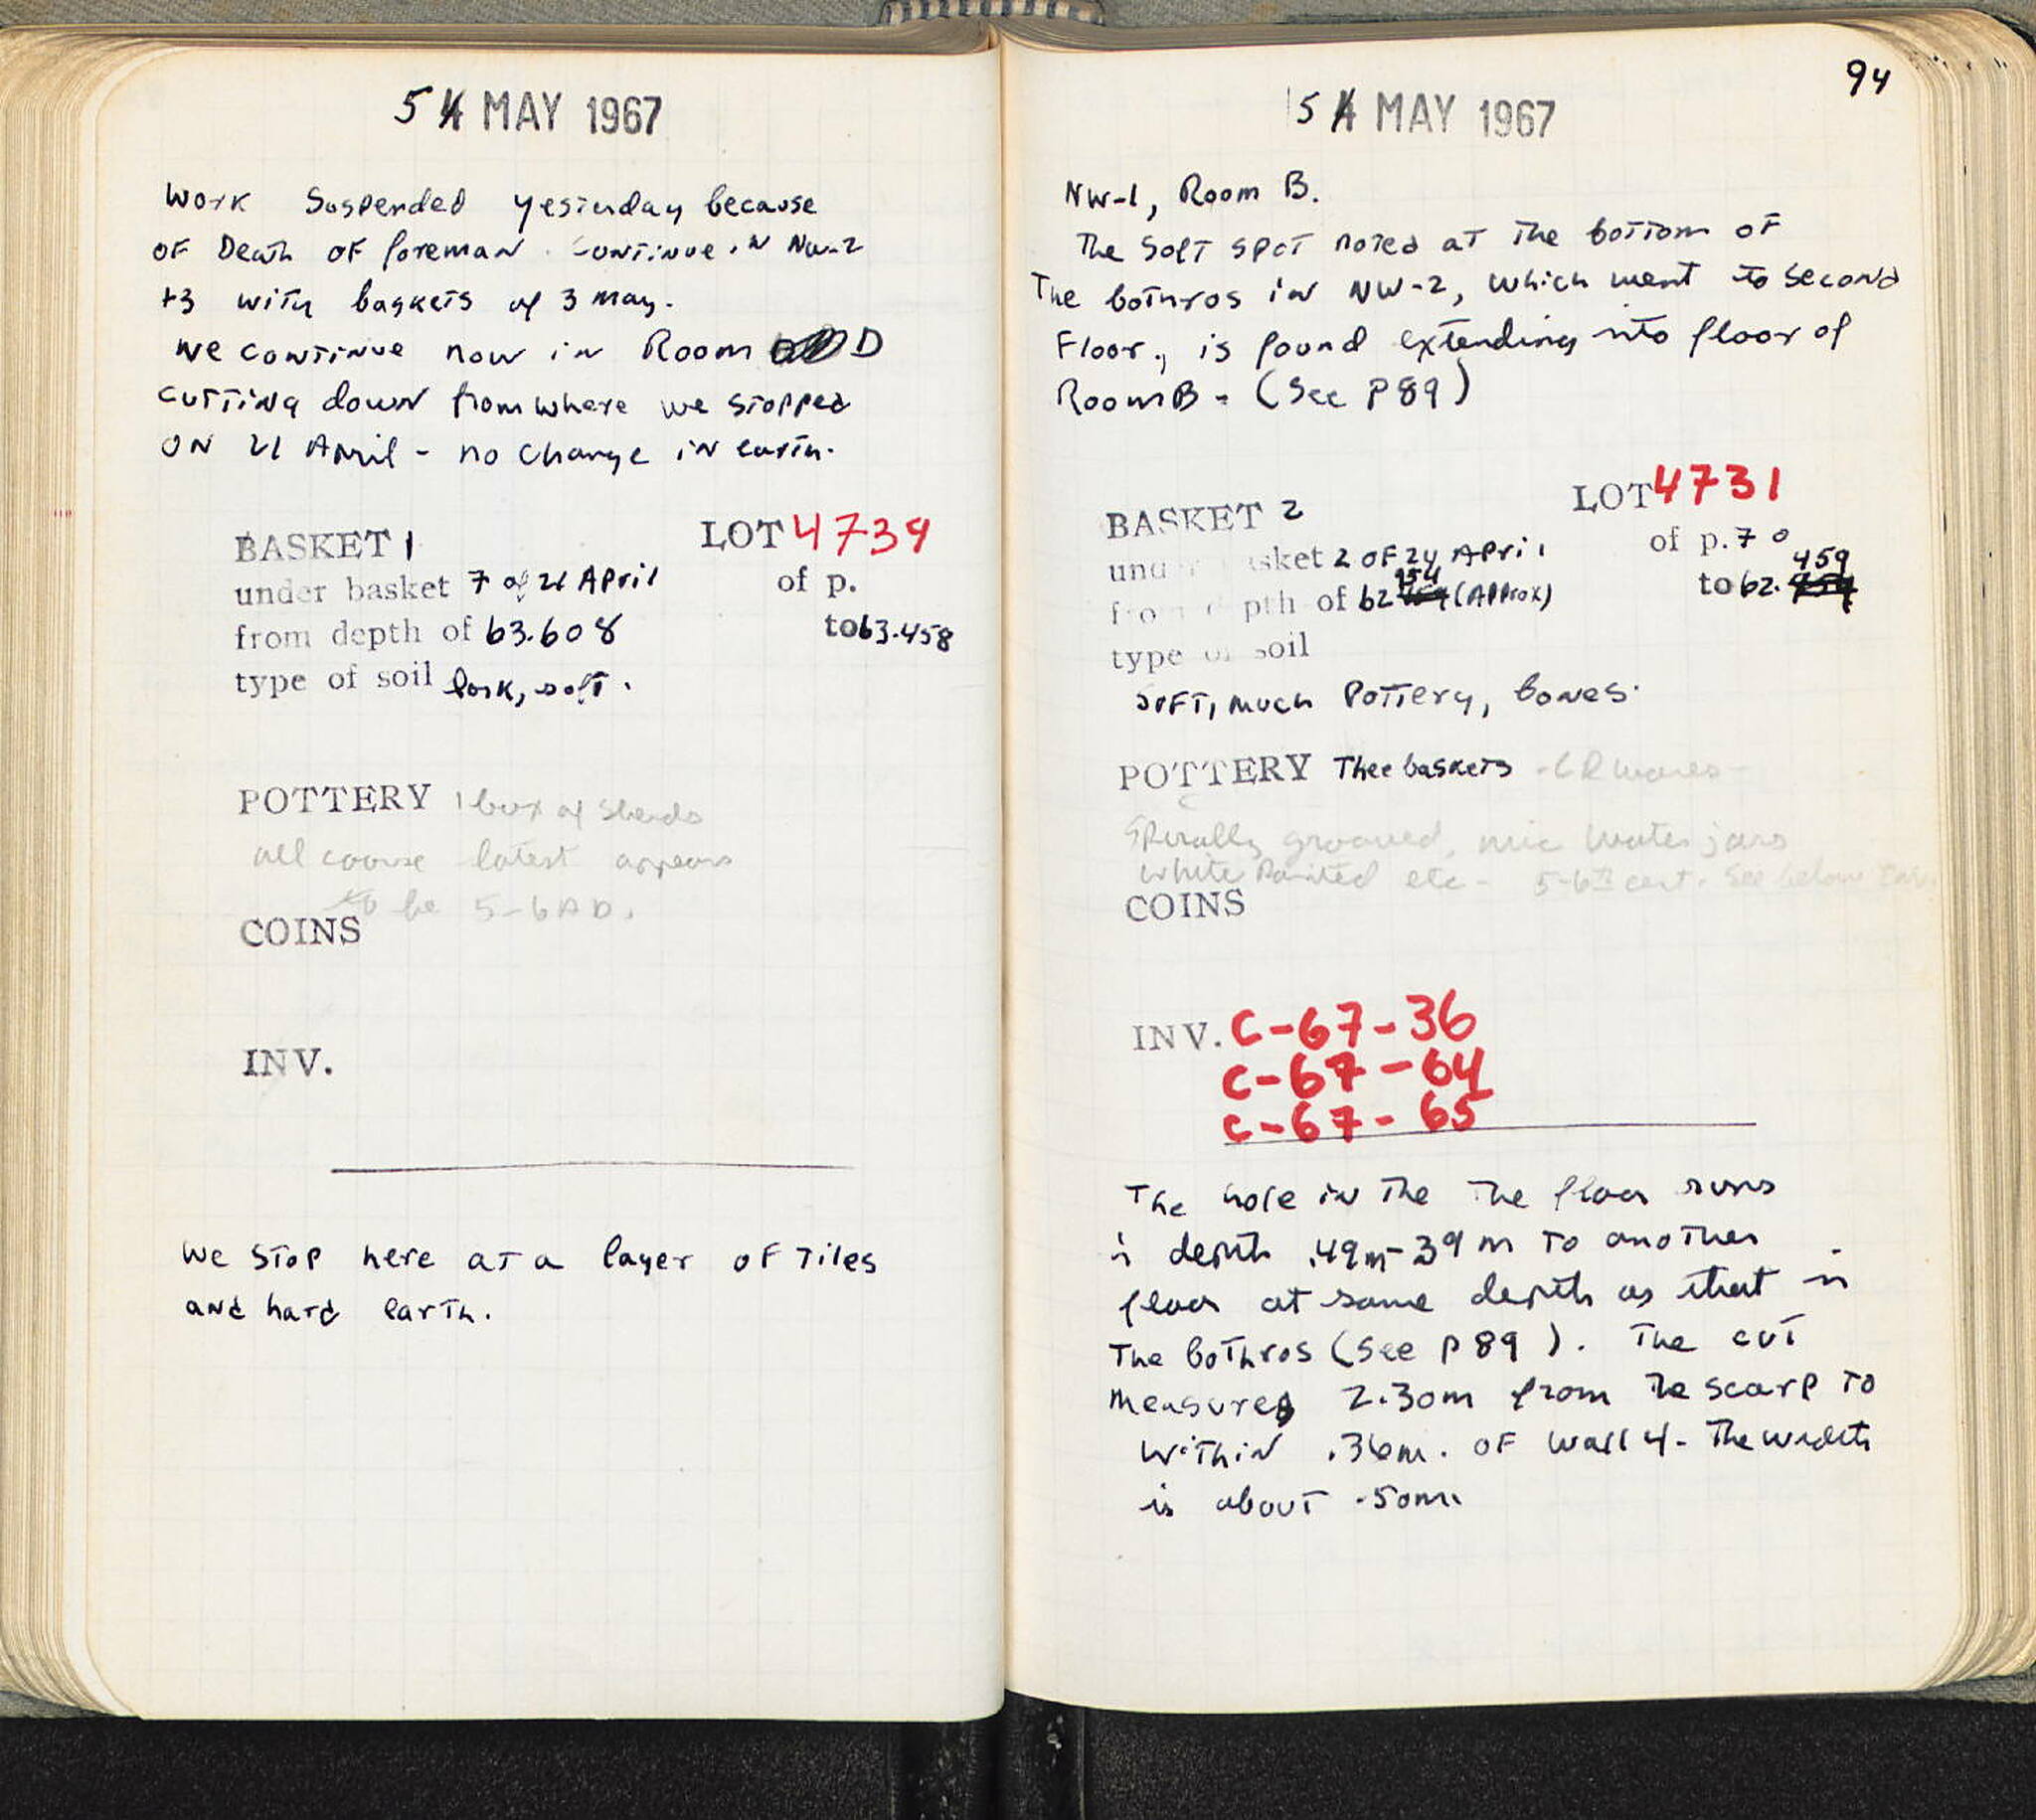 5 4 MAY 1967
Work Suspended yesterday because
OF Death OF foreman. Continue in NW-2
+3 with baskets of 3 May.
We continue now in Room D
cutting down from where we stopped
ON 21 April - no change in earth.
BASKET 1 LOT 4739
under basket 7 of 21 April of p.
from depth of 63.608 to 63.458
type of soil dark, soft.
POTTERY 1 box of sherds
all coarse latest appears
to be 5-6 AD.
COINS
INV.
We stop here at a layer of Tiles
and hard earth.
94
5 4 MAY 1967
NW-1, Room B.
The soft spot noted at the bottom of
The bothros in NW-2, which went to second
Floor, is found extending into floor of
Room B - (See P 89)
BASKET 2 LOT 4731
under basket 2 OF 24 April of p. 70
from depth of 62 954 (Approx) to 62. 459
type of soil
soft, much Pottery, bones.
POTTERY Thee baskets - LR wares -
Spirally grooved, mic water jars
White Painted etc - 5-6th cent. See below
COINS
INV. C-67-36
C-67-64
C-67-65
The hole in the the floor runs
in depth .49m-39m to another
floor at same depth as that in
The bothros (see p 89). The cut
measures 2.30m from the scarp to
within .36m. of wall 4. The width
is about .50m.